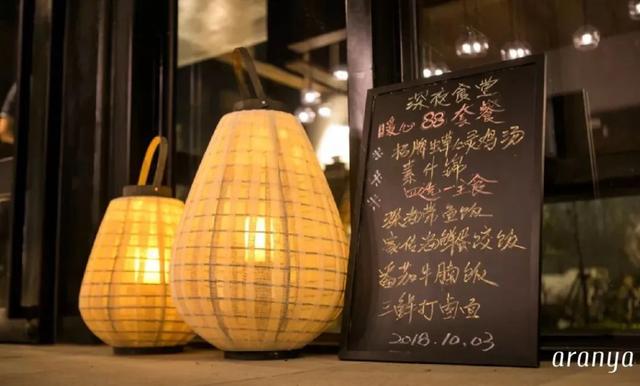 深夜食堂
暖心 88 套餐
招牌
煲鸡汤
素什锦
四选一主食
深海带鱼饭
海鲜
饭
番茄牛腩饭
三鲜打卤
2018.10.03
aranya